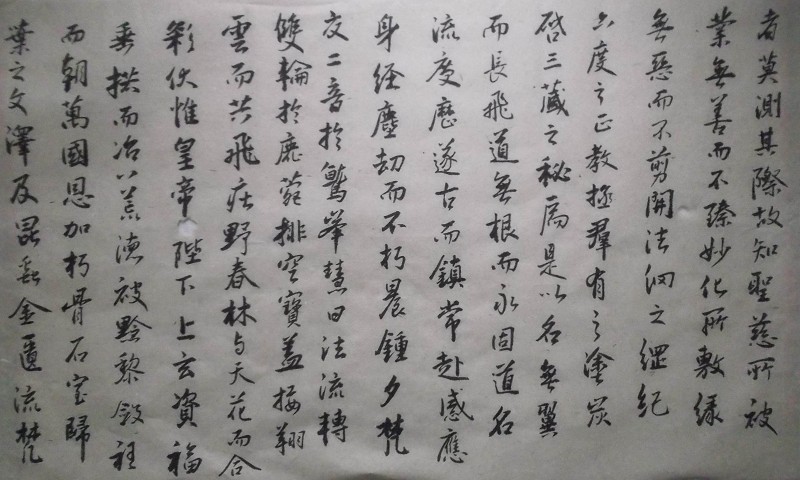 者莫測其際故知聖慈所被
業無善而不臻妙化所敷緣
無惡而不剪開法網之綱紀
六度之正教拯羣有之塗炭
啓三藏之秘扃是以名無翼
而長飛道無根而永固道名
流慶歷遂古而鎮常赴感應
身經塵劫而不朽晨鍾夕梵
交二音於鷲峯慧日法流轉
雙輪於鹿菀排空寶蓋接翔
雲而共飛莊野春林与天花而合
彩伏惟皇帝陛下上玄資福
垂拱而治八荒德被黔黎斂衽
而朝萬國恩加朽骨石室歸
葉之文澤及昆蟲金匱流梵